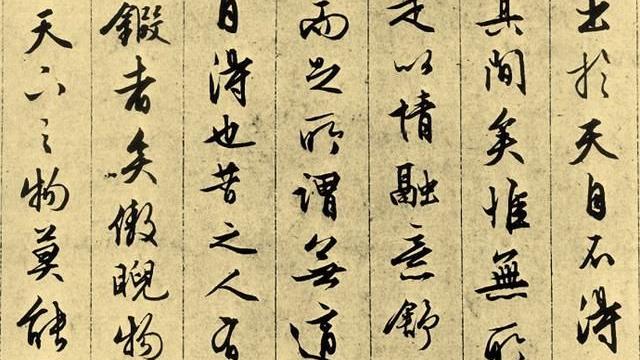 出於天自不得
其間矣惟無所
是以情融意舒
而是所謂無適
自得也昔之人有
鍛者矣傲睨物
天下之物莫能